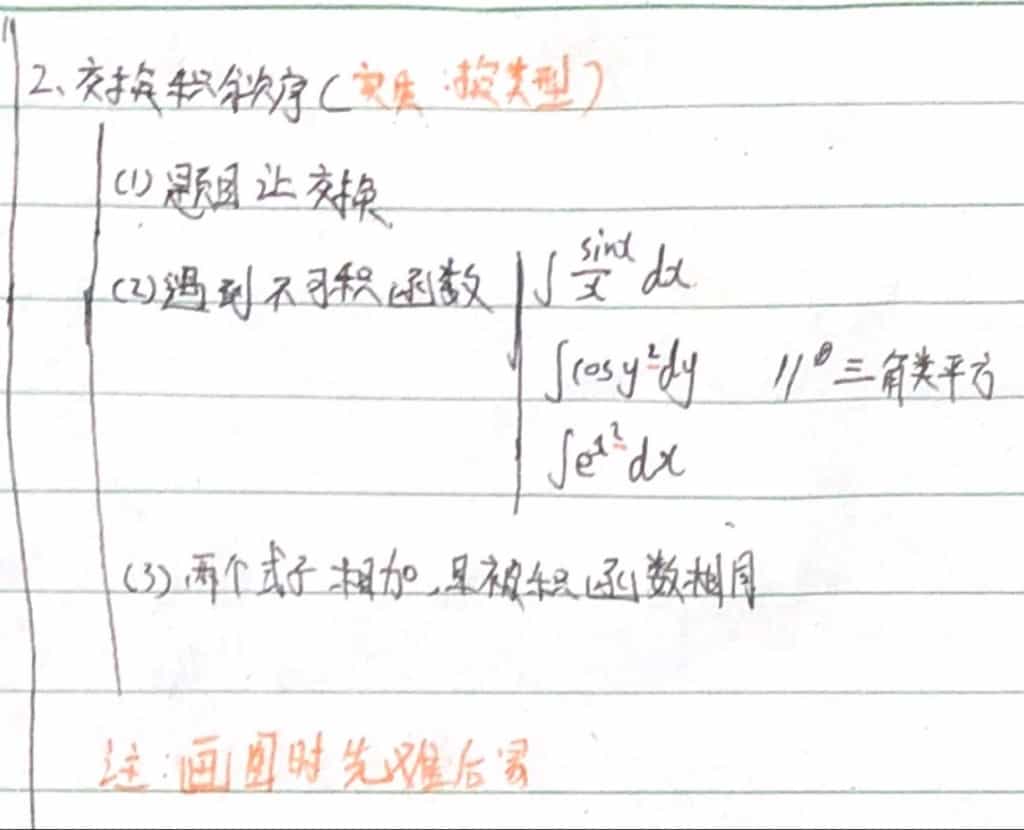 2、交换积分次序(实质:换类型)
(1) 题目让交换
(2) 遇到不可积函数 ∫ sinx/x dx
∫cosy²dy // 三角类平方
∫e^x² dx
(3) 两个式子相加,且被积函数相同
注:画图时先难后易